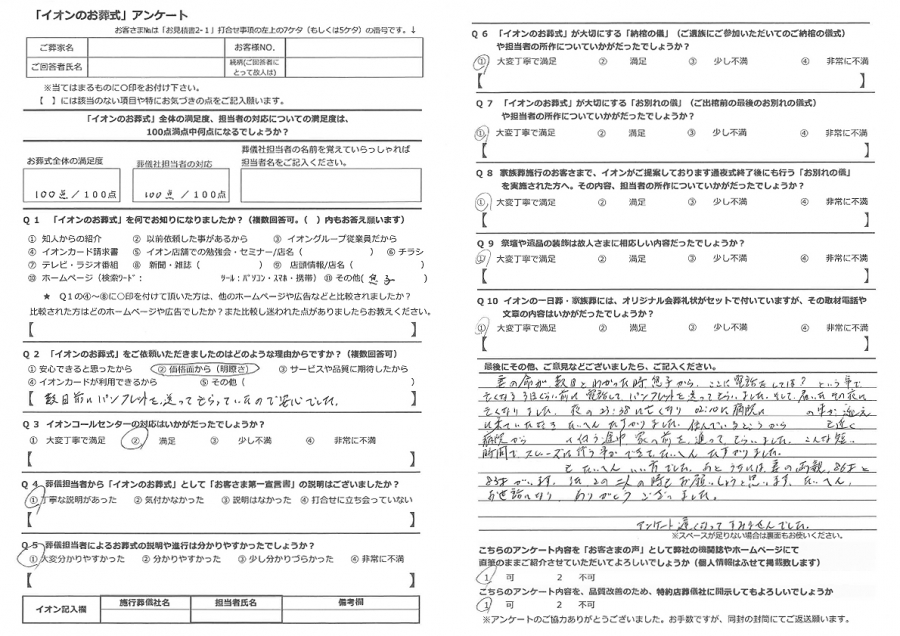 「イオンのお葬式」アンケート
お客さま№は「お見積書2-1」打合せ事項の左上の7ケタ（もしくは5ケタ）の番号です。↓
ご葬家名 お客様NO.
ご回答者氏名 続柄(ご回答者にとって故人は)
※当てはまるものに○印をお付け下さい。
【　】には該当のない項目や特にお気づきの点をご記入願います。
「イオンのお葬式」全体の満足度、担当者の対応についての満足度は、
100点満点中何点になるでしょうか？
お葬式全体の満足度 葬儀社担当者の対応 葬儀社担当者の名前を覚えていらっしゃれば
担当者名をご記入ください。
100点/100点 100点/100点
Q１ 「イオンのお葬式」を何でお知りになりましたか？（複数回答可。（　）内もお答え願います）
① 知人からの紹介 ② 以前依頼した事があるから ③ イオングループ従業員だから
④ イオンカード請求書 ⑤ イオン店舗での勉強会・セミナー/店名（　） ⑥ チラシ
⑦ テレビ・ラジオ番組 ⑧ 新聞・雑誌（　） ⑨ 店頭情報/店名（　）
⑩ ホームページ（検索ﾜｰﾄﾞ：　ﾂｰﾙ：ﾊﾟｿｺﾝ・ｽﾏﾎ・携帯） ⑪ その他(息子　)
★ Q1の④～⑧に○印を付けて頂いた方は、他のホームページや広告などと比較されましたか？
比較された方はどのホームページや広告でしたか？また比較し迷われた点がありましたらお教えください。
【　】
Q２ 「イオンのお葬式」をご依頼いただきましたのはどのような理由からですか？（複数回答可）
① 安心できると思ったから ② 価格面から（明瞭さ） ③ サービスや品質に期待したから
④ イオンカードが利用できるから ⑤ その他（　）
【数日前にパンフレットを送ってもらっていたので安心でした。】
Q３ イオンコールセンターの対応はいかがだったでしょうか？
① 大変丁寧で満足 ② 満足 ③ 少し不満 ④ 非常に不満
【　】
Q４ 葬儀担当者から「イオンのお葬式」として「お客さま第一宣言書」の説明はございましたか？
① 丁寧な説明があった ② 気付かなかった ③ 説明はなかった ④ 打合せに立ち会っていない
【　】
Q５ 葬儀担当者によるお葬式の説明や進行は分かりやすかったでしょうか？
① 大変分かりやすかった ② 分かりやすかった ③ 少し分かりづらかった ④ 非常に不満
【　】
イオン記入欄 施行葬儀社名 担当者氏名 備考欄
Q６ 「イオンのお葬式」が大切にする「納棺の儀」（ご遺族にご参加いただいてのご納棺の儀式）
や担当者の所作についていかがだったでしょうか？
① 大変丁寧で満足 ② 満足 ③ 少し不満 ④ 非常に不満
【　】
Q７ 「イオンのお葬式」が大切にする「お別れの儀」（ご出棺前の最後のお別れの儀式）
や担当者の所作についていかがだったでしょうか？
① 大変丁寧で満足 ② 満足 ③ 少し不満 ④ 非常に不満
【　】
Q８ 家族葬施行のお客さまで、イオンがご提案しております通夜式終了後にも行う「お別れの儀」
を実施された方へ。その内容、担当者の所作についていかがだったでしょうか？
① 大変丁寧で満足 ② 満足 ③ 少し不満 ④ 非常に不満
【　】
Q９ 祭壇や遺品の装飾は故人さまに相応しい内容だったでしょうか？
① 大変丁寧で満足 ② 満足 ③ 少し不満 ④ 非常に不満
【　】
Q10 イオンの一日葬・家族葬には、オリジナル会葬礼状がセットで付いていますが、その取材電話や
文章の内容はいかがだったでしょうか？
① 大変丁寧で満足 ② 満足 ③ 少し不満 ④ 非常に不満
【　】
最後にその他、ご意見などございましたら、ご記入ください。
妻の命が、数日とわかった時 息子から、ここに電話をしては？ という事で
亡くなる3日くらい前に電話して、パンフレットを送ってもらいました。そして、届いた
亡くなりました。夜の23:38に亡くなり 02:00に病院に の車が迎え
に来ていただき たいへん たすかりました。住んでいるところが も近く
病院から へ行う途中、家の前を、通って、もらいました。こんな短い
時間で スムーズに行う事ができて たいへん たすかりました。
も たいへん いい方でした。あと うちには、妻の両親、86才と
83才がいます。次 この二人の時も お願いしようと思います。たいへん、
お世話になり、ありがとう ございました。
アンケート 遅くなって すみませんでした。
※スペースが足りない場合は裏面もお使いください。
こちらのアンケート内容を「お客さまの声」として弊社の機関誌やホームページにて
直筆のままご紹介させていただいてよろしいでしょうか（個人情報はふせて掲載致します）
1 可 2 不可
こちらのアンケート内容を、品質改善のため、特約店葬儀社に開示してもよろしいでしょうか
1 可 2 不可
※アンケートのご協力ありがとうございました。お手数ですが、同封の封筒にてご返送願います。